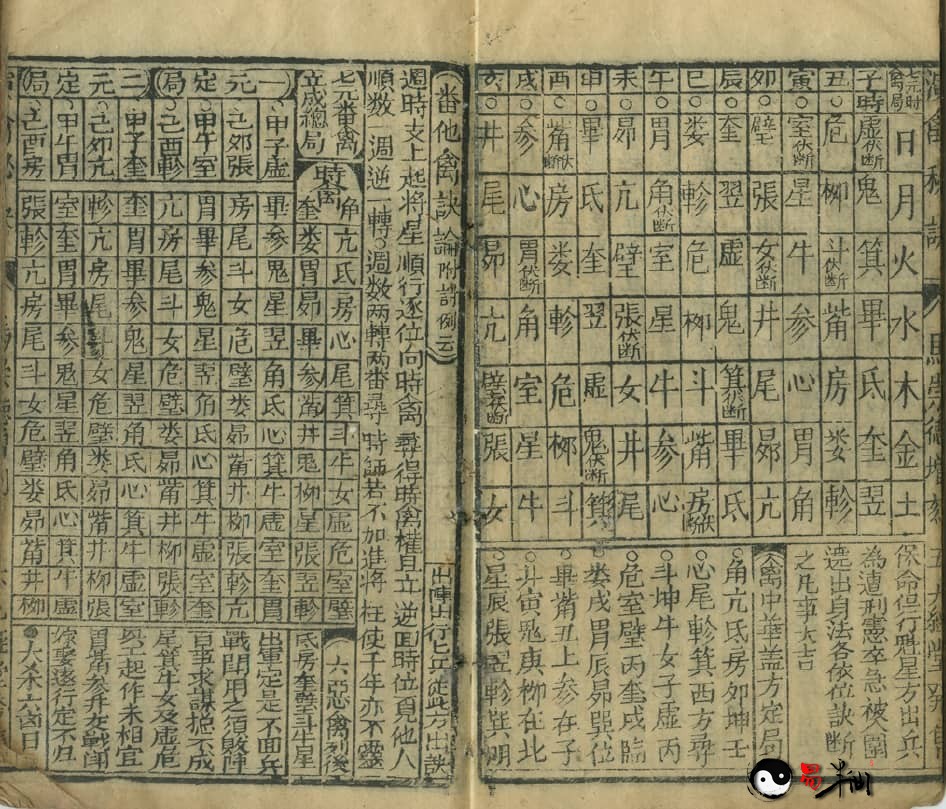 七元時禽局 日 月 火 水 木 金 土
子時 虛伏断 鬼 箕 畢 氐 奎 翌
丑 危 柳 斗伏断 觜 房 娄 軫
寅 室伏断 星 牛 参 心 胃 角
夘 壁 張 女伏断 井 尾 昴 亢
辰 奎 翌 虛 鬼 箕伏断 畢 氐
巳 娄 軫 危 柳 斗 觜 房伏断
午 胃 角伏断 室 星 牛 参 心
未 昴 亢 壁 張伏断 女 井 尾
申 畢 氐 奎 翌 虛 鬼伏断 箕
酉 觜伏断 房 娄 軫 危 柳 斗
戌 参 心 胃伏断 角 室 星 牛
亥 井 尾 昴 亢 壁伏断 張 女
保命但行魁星方出兵
為遭刑憲卒急被人圍
遶出身法各依位訣断
之凡事大吉
禽中華盖方定局
角亢氐房夘坤壬
心尾軫箕西方尋
斗坤牛女子虛丙
危室壁丙奎戌臨
娄戌胃辰昴巽位
畢觜丑上参在子
井寅鬼庚柳在北
星辰張翌軫巽明
一番他禽訣論附詩例云
出陣出行七兵從此方出訣
遁時支上起將星順行逐位向時禽尋得時禽權且立逆回時位見他人
順数一週逆一轉○週数两轉两番尋時師若不加進將枉使千年亦不靈
七元番禽立成總局
時禽
角 亢 氐 房 心 尾 箕 斗 牛 女 虛 危 室 壁
奎 娄 胃 昴 畢 参 觜 井 鬼 柳 星 張 翌 軫
一元定局
甲子虛 畢 参 鬼 星 翌 角 氐 心 箕 牛 虛 室 奎 胃
己夘張 房 尾 斗 女 危 壁 娄 昴 觜 井 柳 張 軫 亢
甲午室 胃 畢 参 鬼 星 翌 角 氐 心 箕 牛 虛 室 奎
己酉軫 亢 房 尾 斗 女 危 壁 娄 昴 觜 井 柳 張 軫
二元定局
甲子奎 奎 胃 畢 参 鬼 星 翌 角 氐 心 箕 牛 虛 室
己夘亢 軫 亢 房 尾 斗 女 危 壁 娄 昴 觜 井 柳 張
甲午胃 室 奎 胃 畢 参 鬼 星 翌 角 氐 心 箕 牛 虛
己酉房 張 軫 亢 房 尾 斗 女 危 壁 娄 昴 觜 井 柳
六惡禽列後
氐房奎壁斗牛星
出軍定是不面兵
戰鬪用之須敗陣
百事求謀摠不成
星箕牛女及虛危
起作未相宜
胃觜参井在戰
嫁娶遂行定不归
大杀六囱日